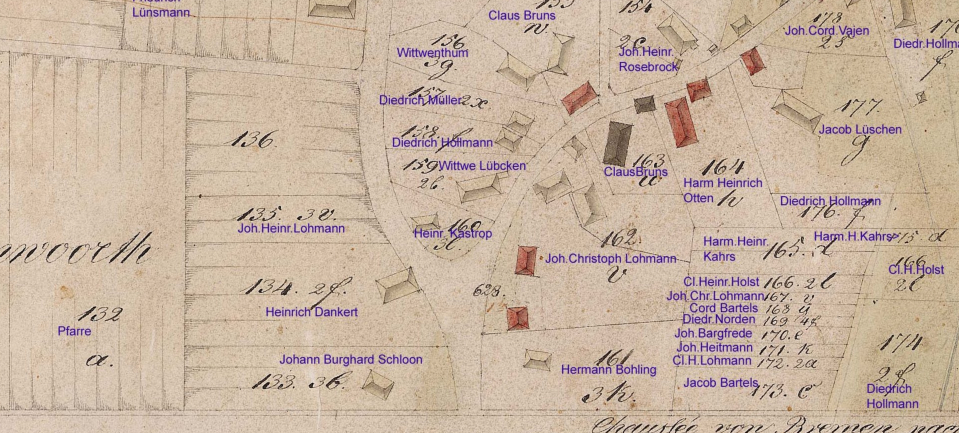 Lünsmann
Claus Bruns
156
Wittwenthum
3g.
154
2c
Joh.Heinr.
Rosebrock
178
Joh.Cord Vajen
23
Diedr.Hollma
f
157
Diedrich Müller 2x
158. f
Diedrich Hollmann
159 Wittwe Lübcken
26
160
Heinr. Kastrop
136
135. 3v.
Joh.Heinr.Lohmann
woorth
134. 2f.
Heinrich Dankert
132
Pfarre
a.
Johann Burghard Schloon
133. 3b.
163
ClausBruns
w
164
Harm Heinrich
Otten h
177.
Jacob Lüschen
g
Diedrich Hollmann
176. f
162
Joh.Christoph Lohmann
v
628.
Harm.Heinr.
Kahrs 165. d
Harm.H.Kahrs 175 d
166
Cl.H.Holst
2l
Cl.Heinr.Holst 166. 2l
Joh.Chr.Lohmann 167. v
Cord Bartels 168 ü
Diedr.Norden 169
Joh.Bargfrede 170. e
Joh.Heitmann 171. k
Cl.H.Lohmann 172. 2a
Jacob Bartels 173. c
161
Hermann Bohling
3k.
174
Diedrich
Hollmann
Chaussée von Bremen nach